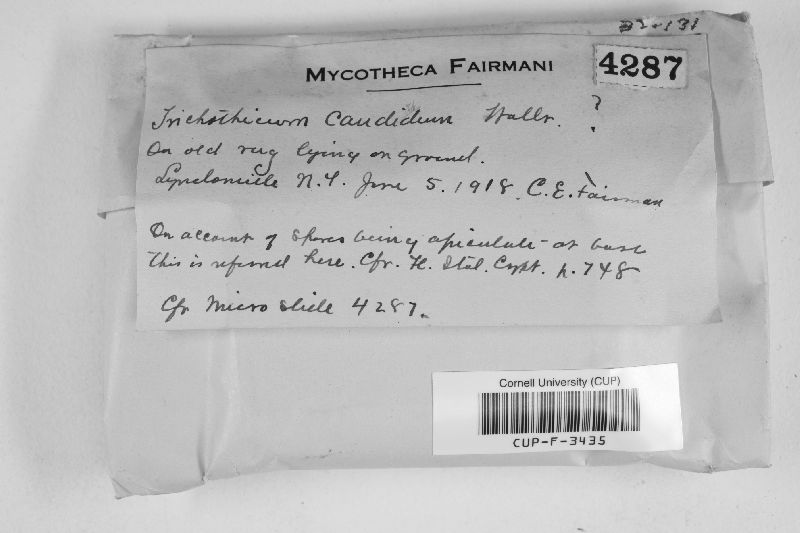 B2-131
MYCOTHECA FAIRMANI
4287
Trichothecium candidum Wallr. ?
On old rug lying on ground.
Lyndonville N.Y. June 5. 1918. C.E. Fairman
On account of spores being apiculate at base
this is referred here. Cfr. Fl. Ital. Crypt. p. 748
Cfr Micro slide 4287.
Cornell University (CUP)
CUP-F-3435